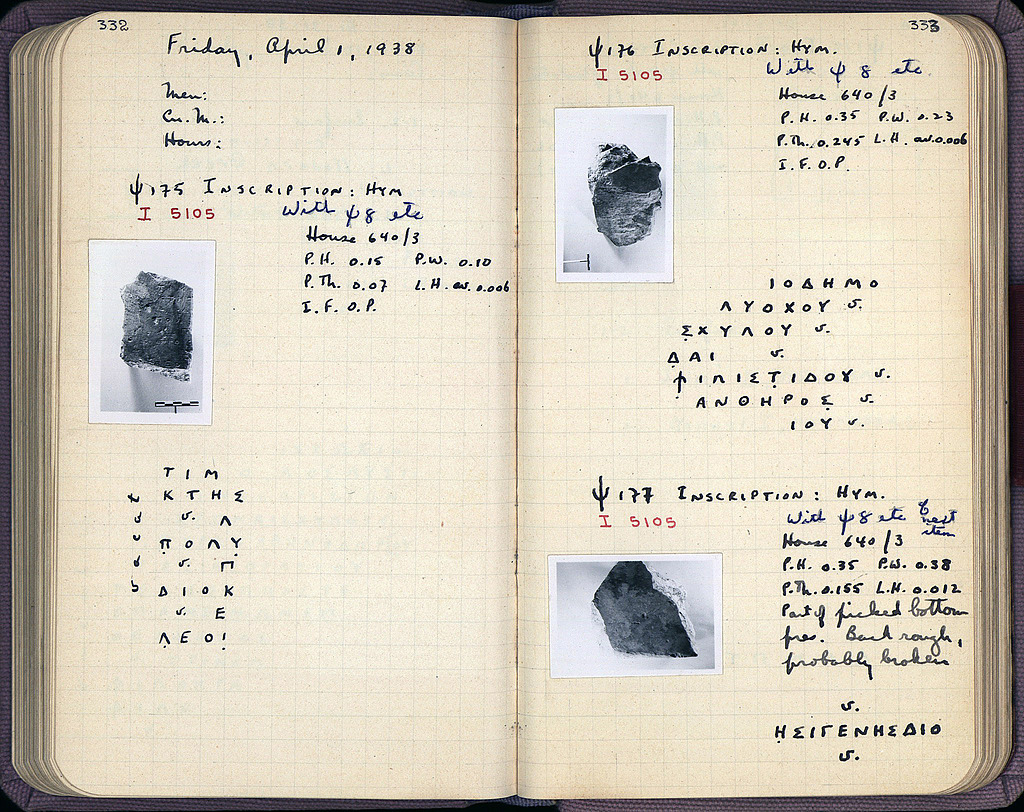 332
Friday, April 1, 1938
Men:
Cu. M.:
Hours:
ψ175 INSCRIPTION: HYM
I 5105
With ψ8 etc
House 640/3
P.H. 0.15 P.W. 0.10
P.Th. 0.07 L.H. av. 0.006
I.F.O.P.
ΤΙΜ
ΚΤΗΣ
υ. Λ
ΠΟΛΥ
υ. Π
ΔΙΟΚ
υ. Ε
ΛΕΟΙ
333
ψ176 INSCRIPTION: HYM.
I 5105
With ψ8 etc
House 640/3
P.H. 0.35 P.W. 0.23
P.Th. 0.245 L.H. av. 0.006
I.F.O.P.
ΙΟΔΗΜΟ
ΛΥΟΧΟΥ υ.
ΣΧΥΛΟΥ υ.
ΔΑΙ υ.
ΦΙΛΙΣΤΙΔΟΥ υ.
ΑΝΘΗΡΟΣ υ.
ΙΟΥ υ.
ψ177 INSCRIPTION: HYM.
I 5105
With ψ8 etc & next item
House 640/3
P.H. 0.35 P.W. 0.38
P.Th. 0.155 L.H. 0.012
Part of picked bottom
pres. Back rough,
probably broken
υ.
ΗΣΙΓΕΝΗΣΔΙΟ
υ.